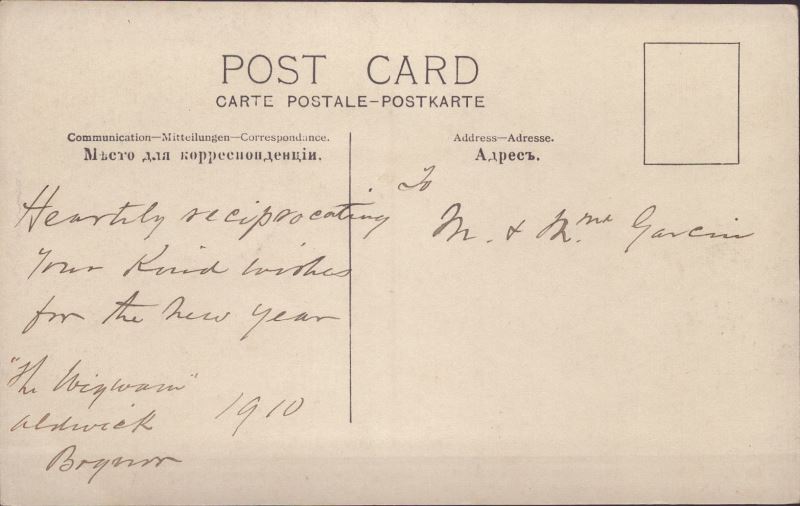 POST CARD
CARTE POSTALE–POSTKARTE
Communication—Mitteilungen—Correspondance.
Мѣсто для корреспонденціи.
Address—Adresse.
Адресъ.
To
M. & M.me Garcin
Heartily reciprocating
your Kind wishes
for the new year
"The Wigwam"
Aldwick
Bognor
1910